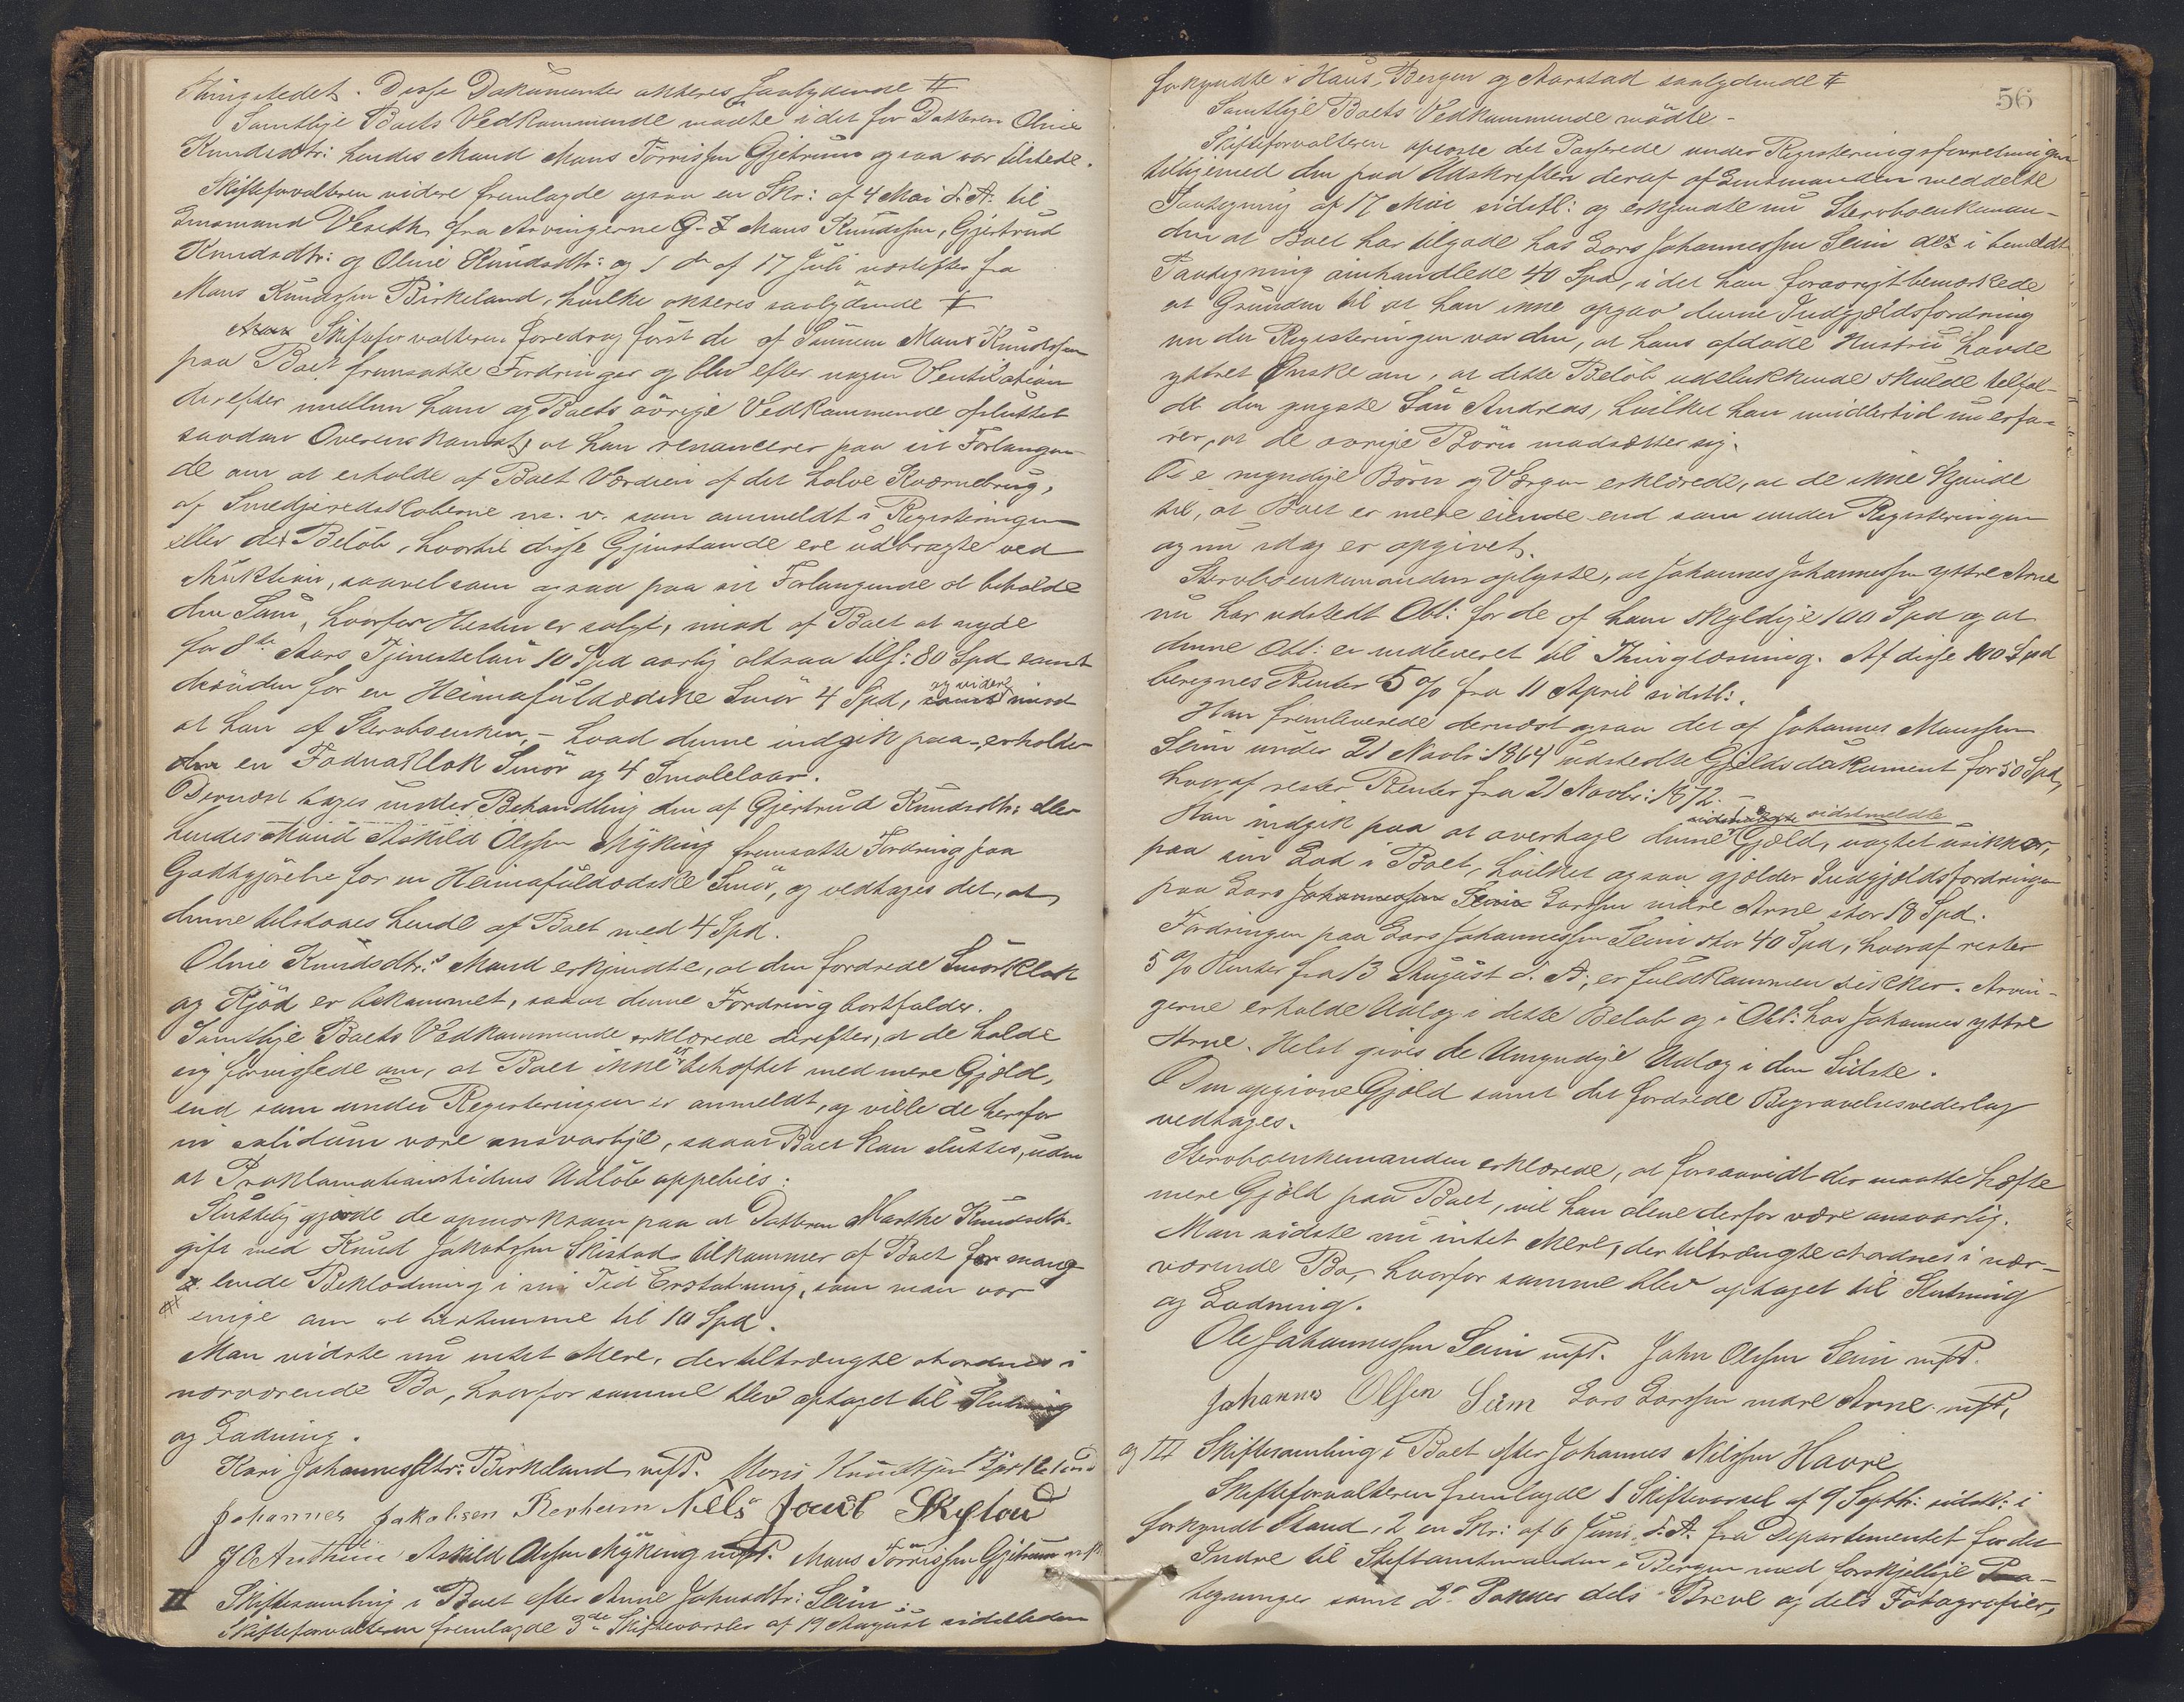 Thingstedet. Disse Dokumenter akteres saalydende #
Samtlige Boets Vedkommende mødte idet for Datteren Oline
Knudsdtr: hendes Mand Mons Torrissen Gjetrum ogsaa var tilstede.
Skifteforvalteren videre fremlagde ogsaa en Skr: af 4 Mai d. A. til
Lensmand Veseth fra Arvingerne Mons Knudssen, Gjertrud
Knudsdtr: og Oline Knudsdtr: og 1 do af 17 Juli næstefter fra
Mons Knudssen Birkeland, hvilke akteres saalydende #
Skifteforvalteren foredrog først de af Sønnen Mons Knudssen
paa Boet fremsatte Fordringer og blev efter nogen Ventilation
derefter imellem ham og Boets øvrige Vedkommende sluttet
saadan Overenskomst, at han renoncerer paa sit Forlangen-
de om at erholde af Boet Værdien af det halve Kværnebrug,
af Smedjeredskaberne m. v. som anmeldt i Registeringen
eller det Beløb, hvortil disse Gjenstande ere udbragte ved
Auktion, saavelsom ogsaa paa sit Forlangende at beholde
den Sum, hvorfor Hesten er solgt, imod af Boet at nyde
for 8te Aars Tjenesteløn 10 Spd aarlig altsaa tils: 80 Spd samt
desuden for en Heimafuldødske Smør 4 Spd, samt og videre imod
at han af Sterbboenken, - hvad denne indgik paa - erholder
den en Fødnaklok Smør og 4 Smalelaar.
Dernæst toges under Behandling den af Gjertrud Knudsdtr: eller
hendes Mand Askild Olssen Myking fremsatte Fordring paa
Godtgjørelse for en Heimafuldødske Smør, og vedtages det, at
denne tilstaaes hende af Boet med 4 Spd.
Oline Knudsdtr:s Mand erkjendte, at den fordrede Smørklok
og Kjød er bekommet, saa at denne Fordring bortfalder.
Samtlige Boets Vedkommende erklærede derefter, at de holde
sig forvissede om, at Boet ikke er behæftet med mere Gjæld,
end som under Registeringen er anmeldt, og ville de herfor
in solidum være ansvarlige, saa at Boet kan sluttes, uden
at Proklamationstidens Udløb oppebies:
Sluttelig gjorde de opmærksom paa at Datteren Marthe Knudsdtr.
gift med Knud Jakobssen Skistad tilkommer af Boet for mang-
lende Beklædning i sin Tid Erstatning, som man var
enige om at bestemme til 10 Spd.
Man vidste nu intet Mere, der tiltrængte at ordnes i
nærværende Bo, hvorfor samme blev optaget til Slutning
og Lodning.
Kari Johannesdtr: Birkeland mfP. Mons Knudtsen Bjrkeland
Johannes Jakobsen Revheim Nels Jonsl Skystou
J O Anthun Askild Olssen Myking mfP. Mons Torrissen Gjetrum mfP
II Skiftesamling i Boet efter Anne Johnsdtr: Seim.
Skifteforvalteren fremlagde 3de Skiftevarsler af 19 August sidstleden
56
forkyndte i Haus, Bergen og Aarstad saalydende #
Samtlige Boets Vedkommende mødte -
Skifteforvalteren oplæste det Passerede under Registeringsforretningen
tilligemed den paa Udskriften deraf af Lensmanden meddelte
Paategning af 17 Mai sidstl: og erkjendte nu Sterbboenkeman-
den at Boet har tilgode hos Lars Johannessen Seim de i bemeldte
Paategning omhandlede 40 Spd, idet han forøvrigt bemærkede
at Grunden til at han ikke opgav denne Indgjældsfordring
under Registeringen var den, at hans afdøde Hustru havde
yttret Ønske om, at dette Beløb udelukkende skulde tilfal-
de den yngste Søn Andreas, hvilket han imidlertid nu erfa-
rer, at de øvrige Børn modsætter sig.
De myndige Børn og Værgen erklærede, at de ikke kjende
til, at Boet er mere eiende end som under Registeringen
og nu idag er opgivet.
Sterbboenkemanden oplyste, at Johannes Johannessen yttre Arne
nu har udstedt Obl: for de af ham skyldige 100 Spd og at
denne Obl: er indleveret til Thinglæsning. Af disse 100 Spd
beregnes Renter 5 % fra 11 April sidstl:.
Han fremleverede dernæst ogsaa det af Johannes Monssen
Seim under 21 Novbr: 1864 udstedte Gjældsdokument for 50 Spd,
hvoraf rester Renter fra 21 Novbr: 1872. -
Han indgik paa at overtage denne sidstmeldte Gjæld, uagtet usikker,
paa sin Lod i Boet, hvilket ogsaa gjælder Indgjældsfordringen
paa Lars Johannessen Seim Larssen indre Arne stor 13 Spd.
Fordringen paa Lars Johannessen Seim stor 40 Spd, hvoraf rester
5 % Renter fra 13 August d. A, er fuldkommen sikker. Arvin-
gerne erholde Udlæg i dette Beløb og i Obl: hos Johannes yttre
Arne. Helst gives de Umyndige Udlæg i den Sidste.
Den opgivne Gjæld samt det fordrede Begravelsesvederlag
vedtages.
Sterbboenkemanden erklærede, at forsaavidt der maatte hæfte
mere Gjæld paa Boet, vil han alene derfor være ansvarlig.
Man vidste nu intet Mere, der tiltrængte at ordnes i nær-
værende Bo, hvorfor samme blev optaget til Slutning
og Lodning.
Ole Johannessen Seim mfP. John Olssen Seim mfP.
Johannes Olsen Seim Lars Larssen indre Arne mfP,
og III Skiftesamling i Boet efter Johannes Nilssen Havre
Skifteforvalteren fremlagde 1 Skiftevarsel af 9 Septbr: sidstl: i
forkyndt Stand, 2 en Skr: af 6 Juni d. A. fra Departementet for det
Indre til Stiftamtmanden i Bergen med forskjellige Paa-
tegninger samt 2de Pakker dels Breve og dels Fotografier,